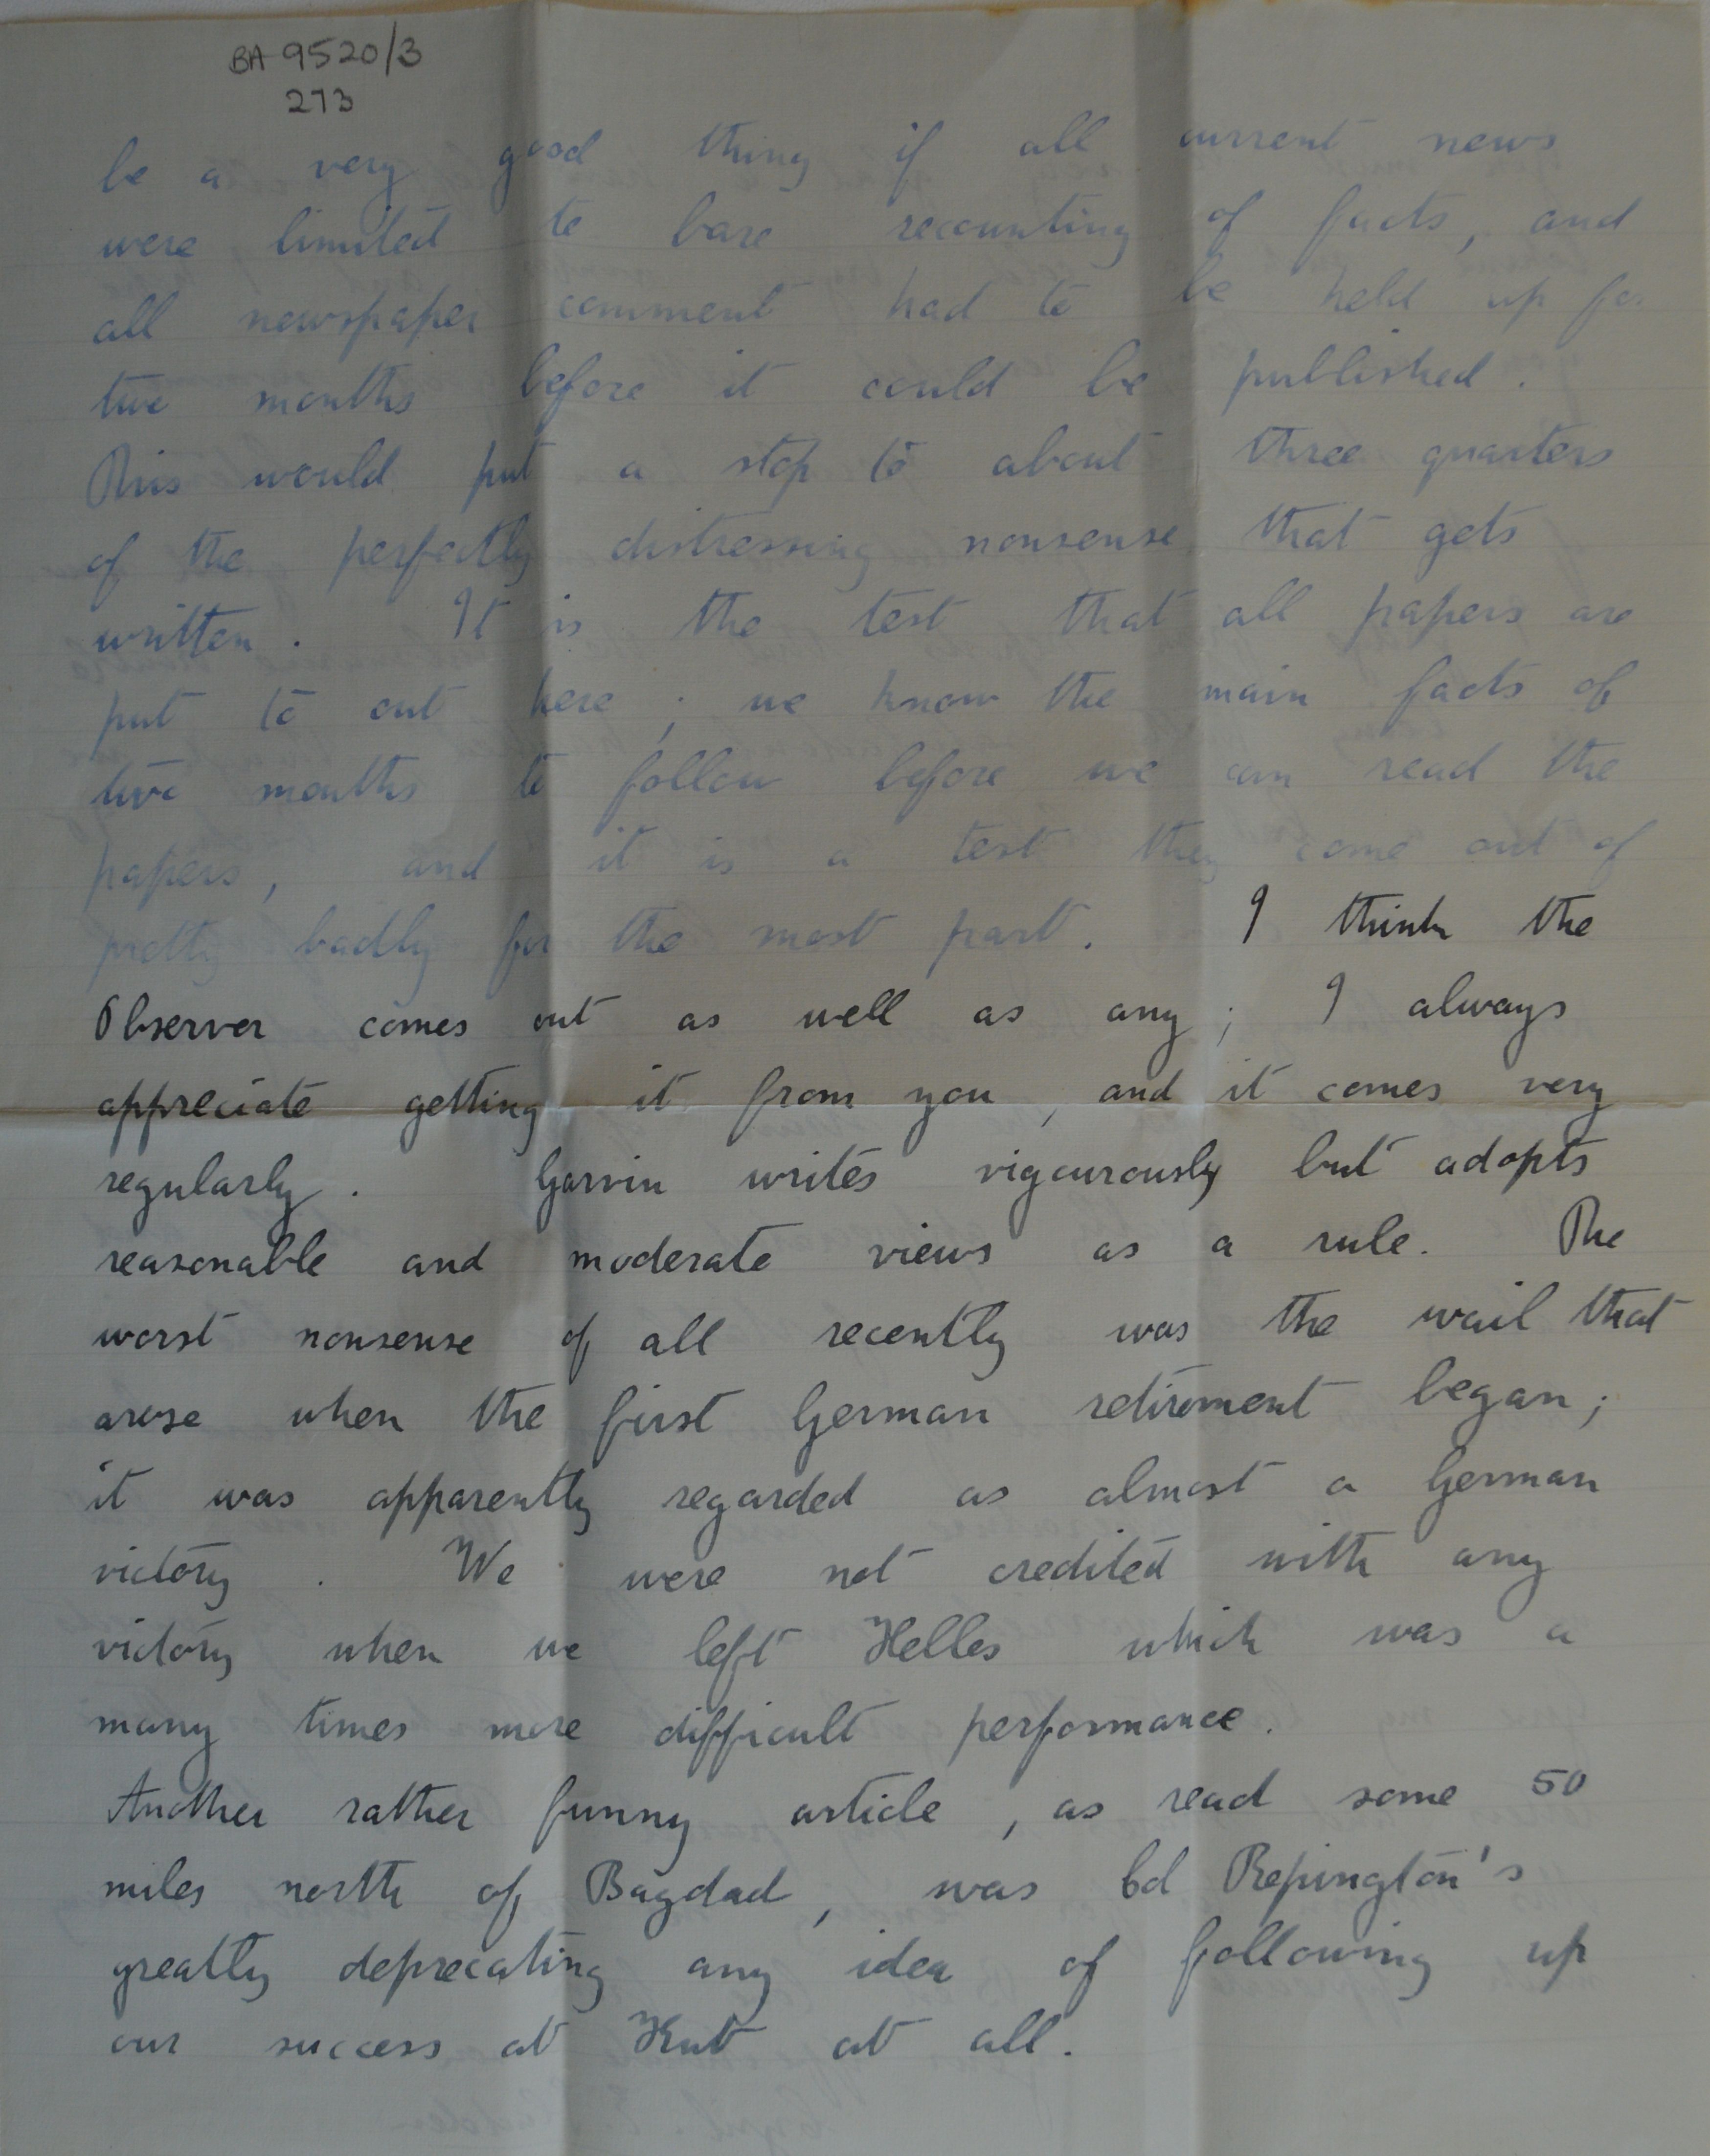 BA 9520/3
273
be a very good thing if all current news
were limited to bare recounting of facts, and
all newspaper comment had to be held up for
two months before it could be published.
This would put a stop to about three quarters
of the perfectly distressing nonsense that gets
written. It is the test that all papers are
put to out here; we know the main facts of
two months to follow before we can read the
papers, and it is a test they come out of
pretty badly for the most part. I think the
Observer comes out as well as any; I always
appreciate getting it from you, and it comes very
regularly. Garvin writes vigourously but adopts
reasonable and moderate views as a rule. The
worst nonsense of all recently was the wail that
arose when the first German retirement began;
it was apparently regarded as almost a German
victory. We were not credited with any
victory when we left Helles which was a
many times more difficult performance.
Another rather funny article, as read some 50
miles north of Bagdad, was Col Repington's
greatly deprecating any idea of following up
our success at Kut at all.